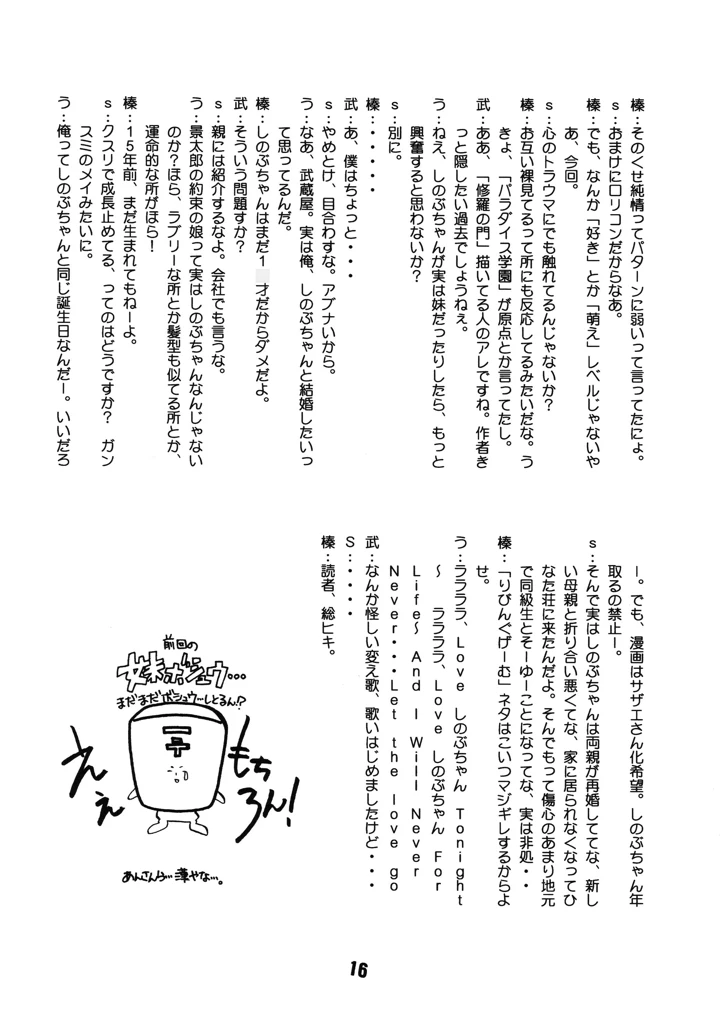 榛:そのくせ純情ってパターンに弱いって言ってたにょ。
s:おまけにロリコンだからなあ。
榛:でも、なんか「好き」とか「萌え」レベルじゃないや
あ、今回。
s:心のトラウマにでも触れてるんじゃないか?
榛:お互い裸見てるって所にも反応してるみたいだな。う
きょ、「パラダイス学園」が原点とか言ってたし。
武:ああ、「修羅の門」描いてる人のアレですね。作者き
っと隠したい過去でしょうねぇ。
う:ねえ、しのぶちゃんが実は妹だったりしたら、もっと
興奮すると思わないか?
s:別に。
榛:・・・・・
武:あ、僕はちょっと・・・
s:やめとけ、目合わすな。アブナいから。
う:なあ、武蔵屋。実は俺、しのぶちゃんと結婚したいっ
て思ってるんだ。
榛:しのぶちゃんはまだ1 才だからダメだよ。
武:そういう問題すか?
s:親には紹介するなよ。会社でも言うな。
う:景太郎の約束の娘って実はしのぶちゃんなんじゃない
のか?ほら、ラブリーな所とか髪型も似てる所とか、
運命的な所がほら!
榛:15年前、まだ生まれてもねーよ。
s:クスリで成長止めてる、ってのはどうですか? ガン
スミのメイみたいに。
う:俺ってしのぶちゃんと同じ誕生日なんだー。いいだろ
ー。でも、漫画はサザエさん化希望。しのぶちゃん年
取るの禁止ー。
s:そんで実はしのぶちゃんは両親が再婚しててな、新し
い母親と折り合い悪くてな、家に居られなくなってひ
なた荘に来たんだよ。そんでもって傷心のあまり地元
で同級生とそーゆーことになってな、実は非処・・
榛:「りびんぐげーむ」ネタはこいつマジギレするからよ
せ。
う:ララララ、Love しのぶちゃん Tonight
~ ララララ、Love しのぶちゃん For
Life~ And I Will Never
Never・・・Let the love go
武:なんか怪しい変え歌、歌いはじめましたけど・・・
S:・・・・
榛:読者、総ヒキ。
前回の
妹ボシュウ…
まだまだボシュウ…しとるん!?
もちろん!
ええ
あんさんら…華やな…。
16